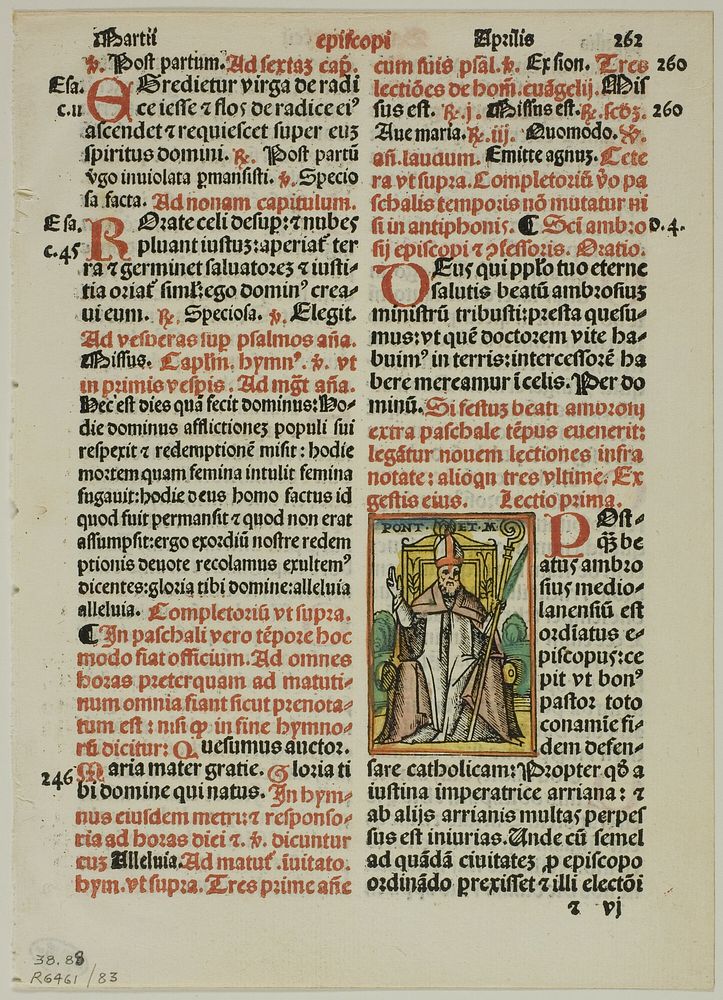 Martii episcopi Aprilis 262
℣. Post partum. Ad sextaʒ cap̃.
Esa. EGredietur virga de radi
c.11 ce iesse ⁊ flos de radice ei⁹
ascendet ⁊ requiescet super euʒ
spiritus domini. ℟. Post partũ
v̓go inuiolata ꝑmansisti. ℣. Specio
sa facta. Ad nonam capitulum.
Esa. ROrate celi desuꝑ: ⁊ nubes
c.45 pluant iustuʒ: aperiat̃ ter
ra ⁊ germinet saluatoreʒ ⁊ iusti-
tia oriat̃ siml̃: ego domin⁹ crea-
ui eum. ℟. Speciosa. ℣. Elegit.
Ad vesperas sup psalmos aña.
Missus. Capl̃m. hymn⁹. ℣. vt
in primis vesp̃is. Ad mg̃t aña.
Hec est dies quã fecit dominus: Ho-
die dominus afflictioneʒ populi sui
respexit ⁊ redemptionẽ misit: hodie
mortem quam femina intulit femina
fugauit: hodie deus homo factus id
quod fuit permansit ⁊ quod non erat
assumpsit: ergo exordiũ nostre redem
ptionis deuote recolamus exultem⁹
dicentes: gloria tibi domine: alleluia
alleluia. Completoriũ vt supra.
¶ In paschali vero tẽpore hoc
modo fiat officium. Ad omnes
horas preterquam ad matuti-
num omnia fiant sicut prenota-
tum est: nisi ꝙ in fine hymno-
rũ dicitur: Quesumus auctor.
246 Maria mater gratie. Gloria ti
bi domine qui natus. In hym-
nus eiusdem metri: ⁊ responso-
ria ad horas diei ⁊ ℣. dicuntur
cuʒ Alleluia. Ad matut̃. ĩuitato.
hym. vt supra. Tres prime añe
cum suis psal. ℣. Ex sion. Tres 260
lectiões de hom̃. euãgelij. Mis
sus est. ℟. j. Missus est. ℟. scd̃ʒ. 260
Aue maria. ℟. iij. Quomodo. ℣.
añ. laudum. Emitte agnuʒ. Cete
ra vt supra. Completoriũ v̓o pa
schalis temporis nõ mutatur ni
si in antiphonis. ¶ Sc̃i ambro D.4.
sij episcopi ⁊ ꝯfessoris. Oratio.
DEus qui pp̃lo tuo eterne
salutis beatũ ambrosiuʒ
ministrũ tribuisti: presta quesu-
mus: vt quẽ doctorem vite ha-
buim⁹ in terris: intercessorẽ ha
bere mereamur ĩ celis. Per do
minũ. Si festuʒ beati ambrosij
extra paschale tẽpus euenerit:
legãtur nouem lectiones infra
notate: alioqn̄ tres vltime. Ex
gestis eius. Lectio prima.
PONT. ET. M
POst-
q̃ʒ be
atus ambro
sius medio-
lanensiũ est
ordĩatus e-
piscopus: ce
pit vt bon⁹
pastor toto
conamĩe fi-
dem defen-
sare catholicam: Propter qd̃ a
iustina imperatrice arriana: ⁊
ab alijs arrianis multas perpes
sus est iniurias. Unde cũ semel
ad quãdã ciuitateʒ ꝓ episcopo
ordinãdo ꝑrexisset ⁊ illi electõi
⁊ vj
38.88
R6461/83